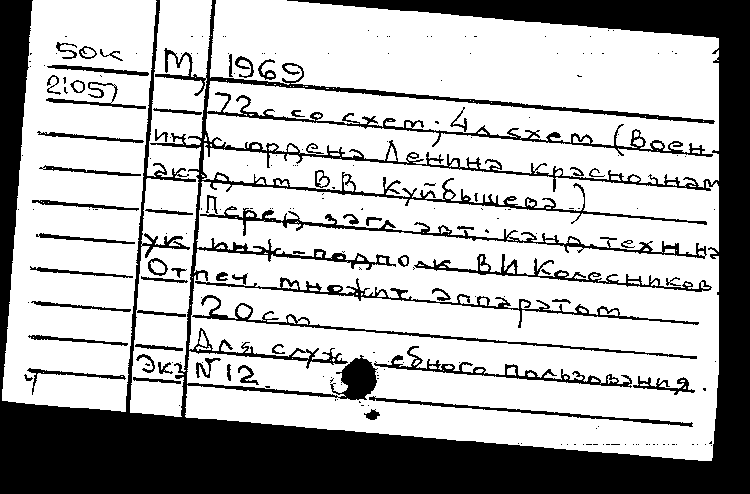 50к М, 1969
21057 72 с со схем; 4 л схем (Воен-
инж. ордена Ленина краснознам
акад им В.В. Куйбышева)
Перед загл авт: канд. техн. на
ук инж-подполк В.И Колесников.
Отпеч. множит. аппаратом
20 см
Для служебного пользования.
Экз N 12.